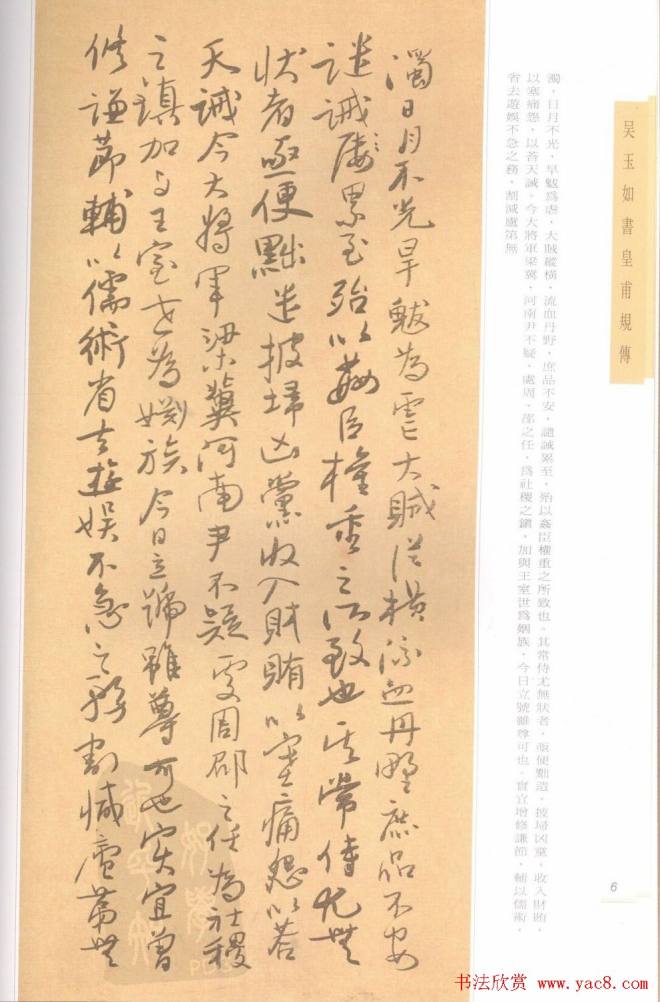 吴玉如書皇甫規傳
濁，日月不光，旱魃爲虐，大賊縱橫，流血丹野，庶品不安，譴誡累至，殆以姦臣權重之所致也。其常侍尤無狀者，亟便黜遣，披埽凶黨，收入財賄，
以塞痛怨，以荅天誡。今大將軍梁冀，河南尹不疑，處周，邵之任，爲社稷之鎮，加與王室世爲姻族，今日立號雖尊可也，實宜增修謙節，輔以儒術，
省去遊娛不急之務，割減廬第無
濁日月不光旱魃為虐大賊從橫流血丹野庶品不安
譴誡屢累至殆以姦臣權重之所致也其常侍尤無
狀者亟便黜遣披埽凶黨收入財賄以塞痛怨以荅
天誡今大將軍梁冀河南尹不疑處周邵之任為社稷
之鎮加与王室世為姻族今日立號雖尊可也实宜曾
修謙節輔以儒術省去遊娱不急之務割減廬第無
6
书法欣赏 www.yac8.com